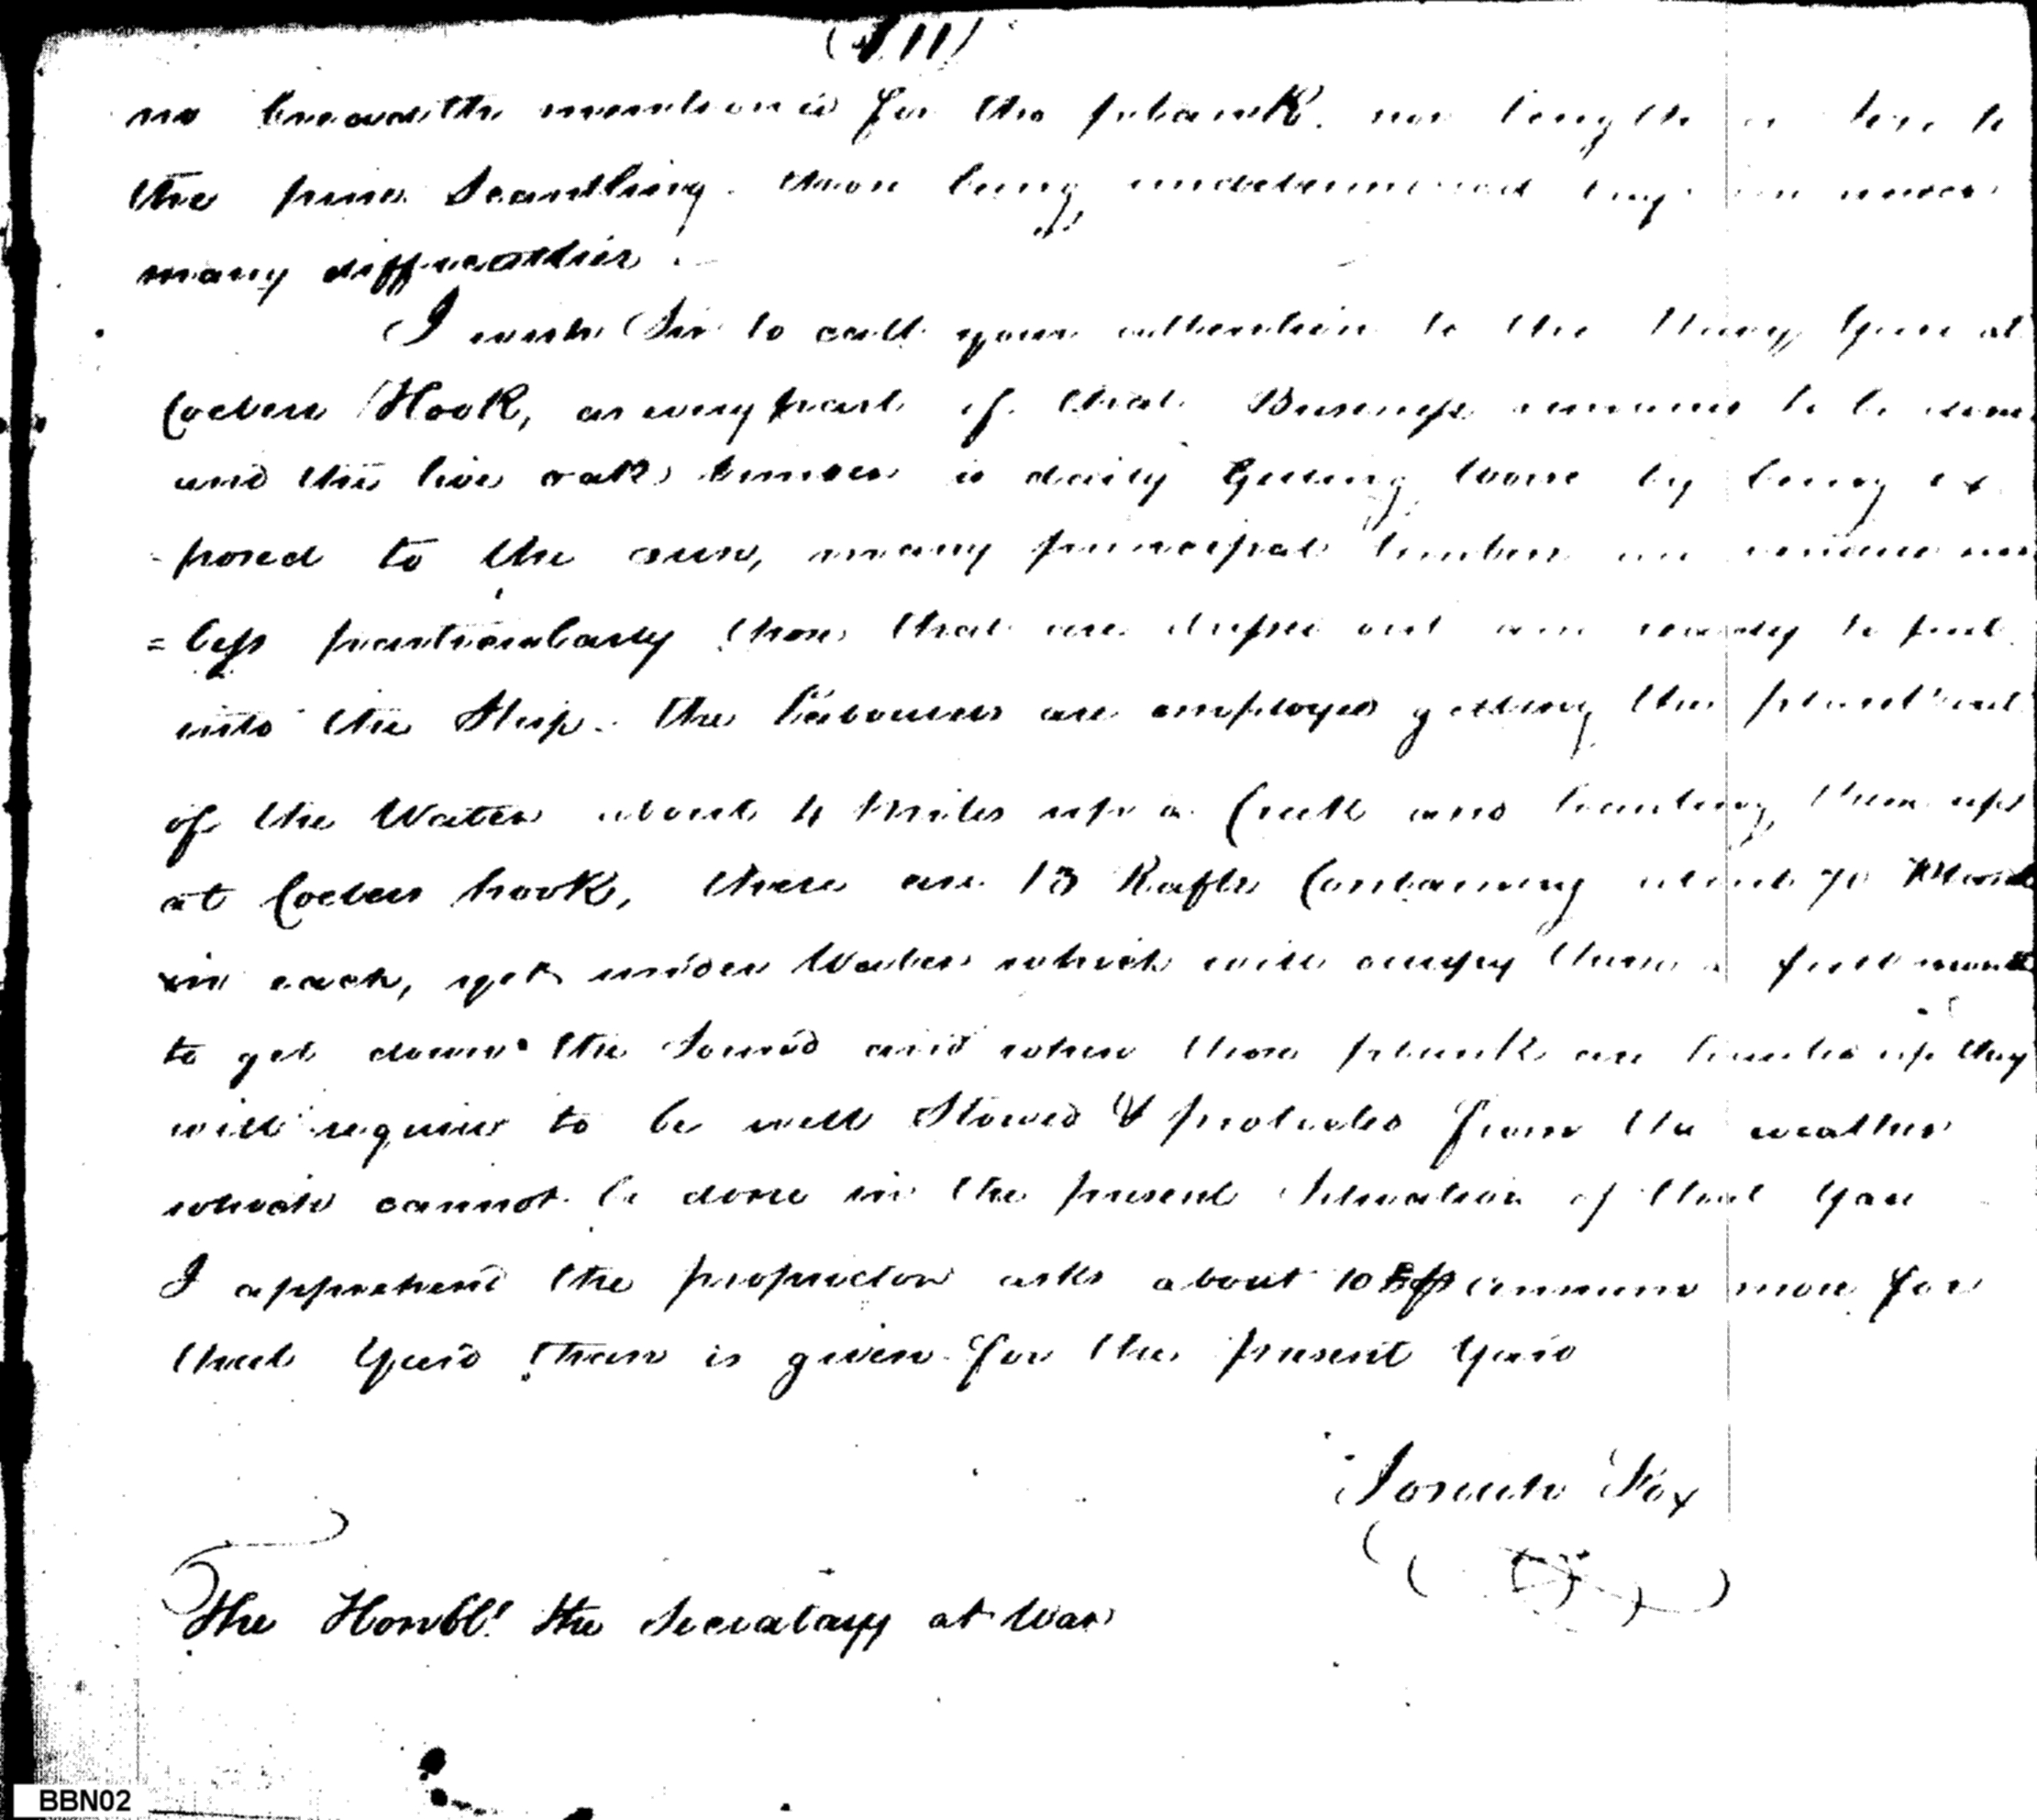 (111)
no breawdth mentioned for the plank. nor length
the pine Scantling. those being undetermined
many difficulties.
I wish Sir to call your attention to the Navy Yard at
Cocten Hook, as every part of that Business remains to be done
and the live oak timber is daily Getting worse by being ex
-posed to the sun, many principal timbers are
=less particularly those that are out and ready to put
into the Ship. the Labourers are employed getting the plank out
of the Water about 4 Miles up a Creek and hauling them up
at Cocten hook, there are 13 Rafts Containing about 70 Plank
in each, yet under Water which will occupy them a full month
to get down the Sound and when those plank are hauled up they
will require to be well Stowed & protected from the weather
which cannot be done in the present Situation of that Yard
I apprehend the proprietor asks about 10 annum more for
that Yard than is given for the present Yard
Josiah Fox
The Honbl! the Secratary at War
BBN02